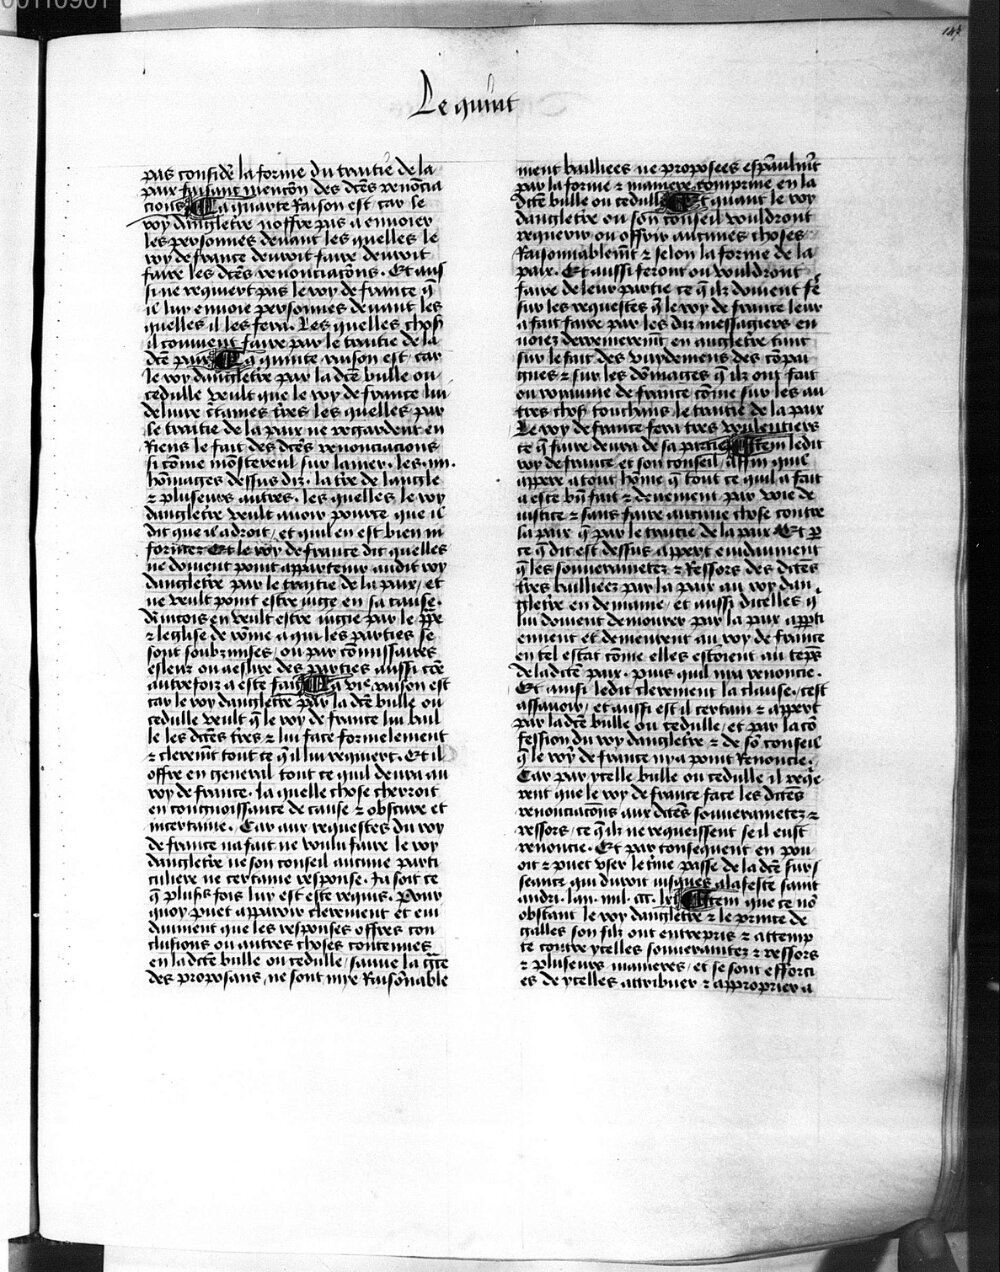 00110901
147
Le quint
pas confider̃ la forme du traitie de la
paix faisant mencõn des dc̃es renoncia
cions La quarte Raison est car le
roy dangletr̃e noffre pas a enuoier
les personnes deuant les quelles le
roy de france deuroit faire deuroit
faire les dc̃es renonciacõns. Et aus
si ne requiert pas le roy de france q̃
il luy enuoie personnes deuant les
quelles il les fera. Les quelles chos̃
il conuient faire par le traitie de la
dc̃e paix La quinte raison est car
le roy dangletr̃e par la dc̃e bulle ou
cedulle veult que le roy de france lui
deliure c̃taines tr̃es les quelles par
le traitie de la paix ne regardent en
Riens le fait des dc̃es renonciacions
si cõme mõstereul sur la mer. les .iiii.
hõmages dessus diz. la tr̃e de langle
⁊ plusieurs autres. les quelles le roy
dangletr̃e veult auoir pource que il
dit que il a droit, et quil en est bien in
forme Et le roy de france dit quelles
ne doiuent point appartenir audit roy
dangletr̃e par le traytie de la paix, et
ne veult point estre iuge en sa cause.
Aincois en veult estre iugie par le pp̃e
⁊ leglise de rõme a qui les parties se
sont soubzmises, ou par cõmissaires
esleuz ou a eslire des parties aussi cõe
autreffoiz a este fait La vi.e raison est
car le roy dangletr̃e par la dc̃e bulle ou
cedulle veult q̃ le roy de france lui bail
le les dc̃es tr̃es ⁊ lui face formelement
⁊ cleremt̃ tout ce q̃ il lui requiert. Et il
offre en general tout ce quil deura au
roy de france. la quelle chose cherroit
en congnoissance de cause ⁊ obscure et
incertaine. Car aux requestes du roy
de france na fait ne voulu faire le roy
dangletr̃e ne son conseil aucune parti
culiere ne certaine response. Ja soit ce
q̃ plusrs̃ fois luy est este requis. Pour
quoy puet apparoir clerement et eui
dãment que les responses offres con
clusions ou autres choses contenues
en la dc̃te bulle ou cedulle, sauue la gr̃ce
des proposans, ne sont mye Raisõnable
ment bailliees ne proposees espãulmt̃
par la forme ⁊ maniere comprinse en la
dc̃te bulle ou cedulle Et quant le roy
dangletr̃e ou son conseil vouldront
requerir ou offrir aucunes choses
Raisonnablemt̃ ⁊ selon la forme de la
paix. Et aussi feront ou vouldront
faire de leur partie ce q̃ ilz doiuent fẽ
sur les requestes q̃ le roy de france leur
a fait faire par les diz messagiers en
uoiez derrenierem̃t en angletr̃e tant
sur le fait des vuydemens des cõpai
gnes ⁊ sur les dõmages q̃ ilz ont fait
ou royaume de france cõme sur les au
tres chos̃ touchans le traitie de la paix
Le roy de france fera tres voulentiers
ce q̃ faire deura de sa partie Item ledit
roy de france et son conseil, affin quil
appere a tout hõme q̃ tout ce quil a fait
a este bñ fait ⁊ deuement par voie de
iustice ⁊ sans faire aucune chose contre
la paix q̃ par le traitie de la paix Et p̱
ce q̃ dit est dessus appert euidãment
q̃ les souuerainetez ⁊ Ressors des dictes
tr̃es bailliees par la paix au roy dan
gletr̃e en demaine, et aussi dicelles q̃
lui doiuent demourer par la paix appti
ennent et demeurent au roy de france
en tel estat cõme elles estoient au tẽps
de la dicte paix. puis quil ni a renoncie.
Et ainsi ledit clerement la clause. cest
assauoir, et aussi est il certain ⁊ appert
par la dc̃te bulle ou cedulle, et par la cõ
fession du roy dangletr̃e ⁊ de sõ conseil
q̃ le roy de france ny a point Renoncie.
Car par ycelle bulle ou cedulle il req̃e
rent que le roy de france face les dictes
renonciacõns aux dictes souuerainetez ⁊
ressors, ce q̃ ilz ne requeissent se il eust
renoncie. Et par consequent en pou
oit ⁊ puet vser le tẽme passe de la dc̃e surs̃
seance qui duroit iusques a la feste saint
andri. lan. mil. ccc. lxi Item que ce nõ
obstant le roy dangletr̃e ⁊ le prince de
galles son filz ont entrepris ⁊ attemp
te contre ycelles souuerainetez ⁊ ressors
⁊ plusieurs manieres, et se sont efforci
es de ycelles attribuer ⁊ approprier a